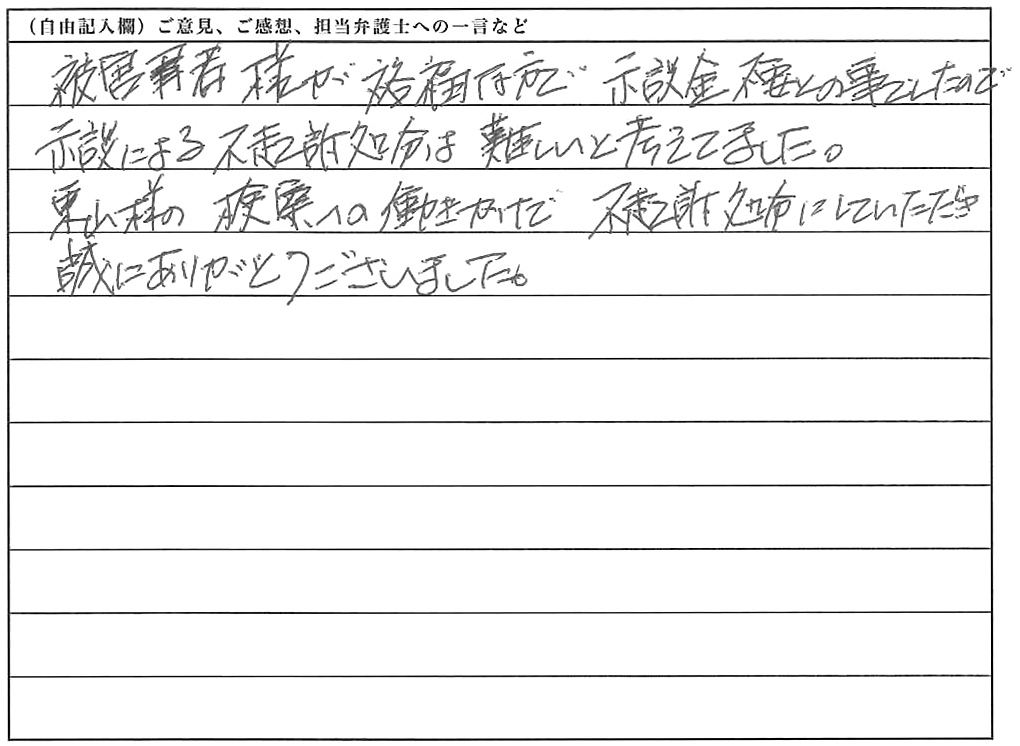 （自由記入欄）ご意見、ご感想、担当弁護士への一言など
被害者様が裕福な方で 示談金不要との事でしたので
示談による不起訴処分は難しいと考えてました。
東山様の検察への働きかけで 不起訴処分にしていただき
誠にありがとうございました。